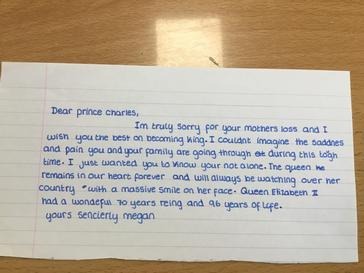 Dear prince charles,
Im truly sorry for your mothers loss and I
wish you the best on becoming king. I couldnt imagine the saddnes
and pain you and your family are going through during this togh
time. I just wanted you to know your not alone. The queen
remains in our heart forever and will always be watching over her
country with a massive smile on her face. Queen Elizabeth II
had a wondeful 70 years reing and 96 years of life.
yours sencierly megan